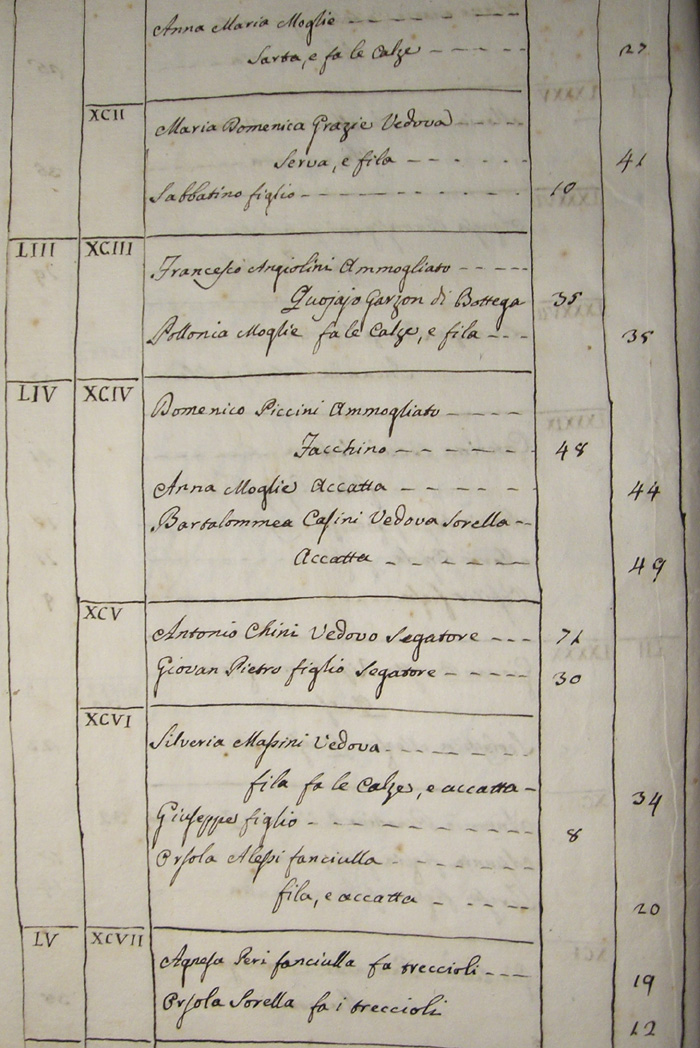 Anna Maria Moglie
Sarta, e fa le Calze 27
XCII Maria Domenica Grazie Vedova
Serva, e fila 41
Sabbatino figlio 10
LIII XCIII Francesco Angiolini Ammogliato
Quojajo Garzon di Bottega 35
Pollonia Moglie fa le Calze, e fila 35
LIV XCIV Domenico Piccini Ammogliato
Facchino 48
Anna Moglie Accatta 44
Bartalommea Casini Vedova Sorella
Accatta 49
XCV Antonio Chini Vedovo Segatore 71
Giovan Pietro figlio Segatore 30
XCVI Silveria Massini Vedova
fila fa le Calze, e accatta 34
Giuseppe figlio 8
Orsola Alessi fanciulla
fila, e accatta 20
LV XCVII Agnesa Peri fanciulla fa treccioli 19
Orsola Sorella fa i treccioli 12